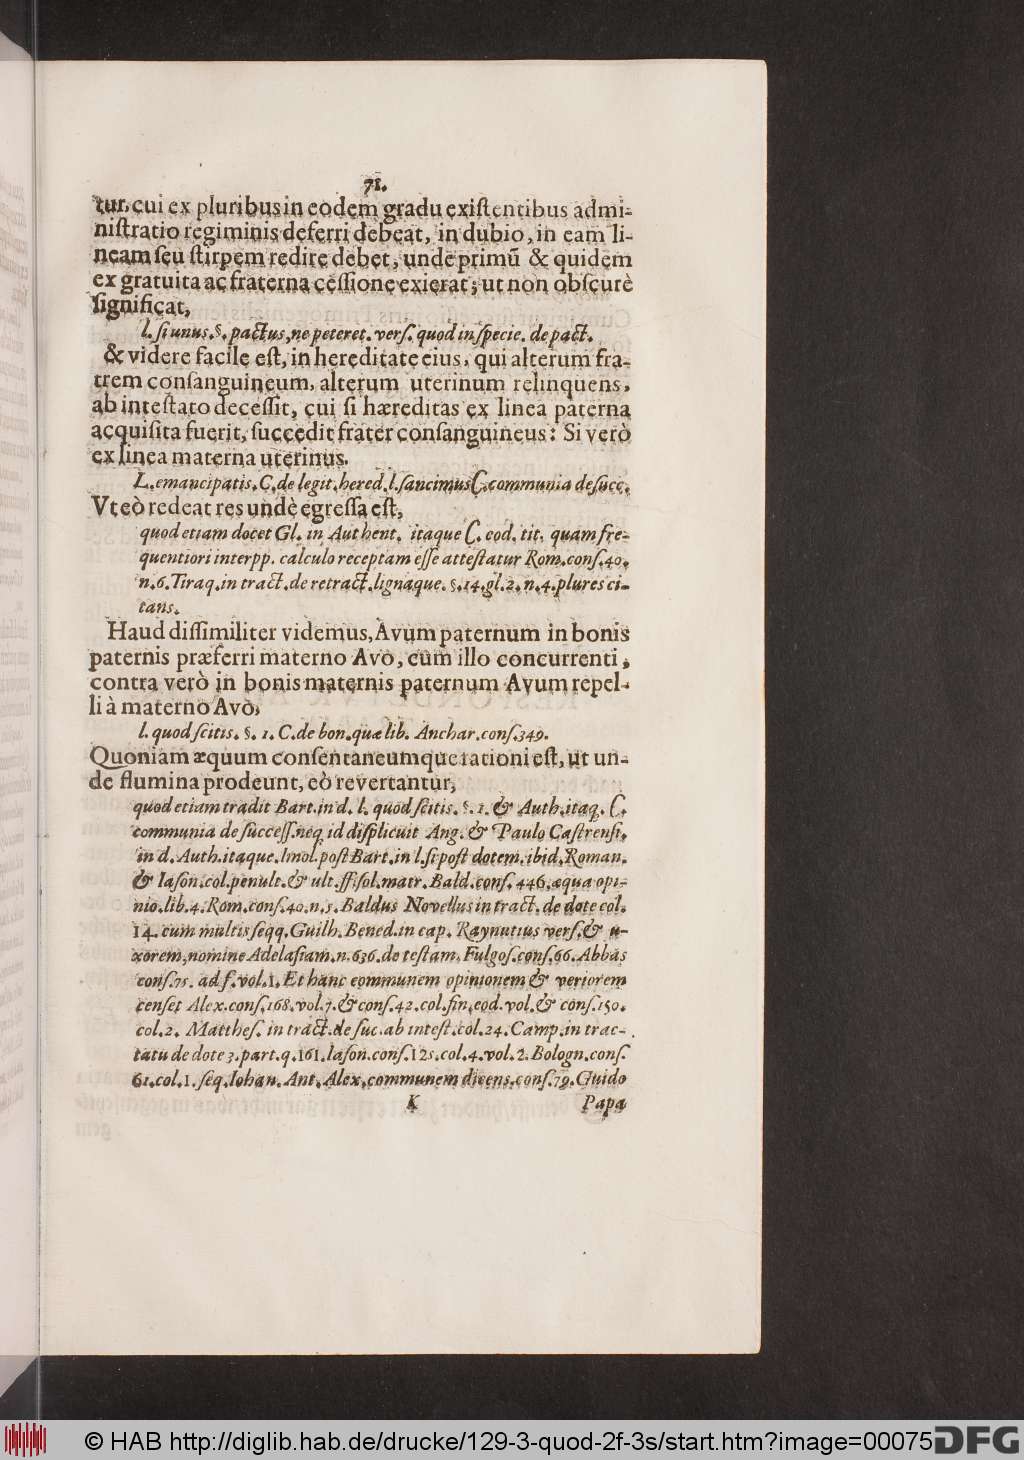 71.
tur, cui ex pluribus in eodem gradu exiſtentibus admi-
niſtratio regiminis deferri debeat, in dubio, in eam li-
neam ſeu ſtirpem redire debet, unde primũ & quidem
ex gratuita ac fraterna ceſſione exierat; ut non obſcurè
ſignificat,
l. ſi unus. §. pactus, ne peteret. verſ. quod in ſpecie. de pact.
& videre facile eſt, in hereditate eius, qui alterum fra-
trem conſanguineum, alterum uterinum relinquens,
ab inteſtato deceſſit, cui ſi hæreditas ex linea paterna
acquiſita fuerit, ſuccedit frater conſanguineus: Si verò
ex linea materna uterinus.
L. emancipatis. C. de legit. hered. l. ſancimus C. communia de ſucc.
Vt eò redeat res undè egreſſa eſt,
quod etiam docet Gl. in Authent. itaque C. eod. tit. quam fre-
quentiori interpp. calculo receptam eſſe atteſtatur Rom. conſ. 40.
n. 6. Tiraq. in tract. de retract. lignaque. §. 14. gl. 2. n. 4. plures ci-
tans.
Haud diſſimiliter videmus, Avum paternum in bonis
paternis præferri materno Avo, cum illo concurrenti,
contra verò in bonis maternis paternum Avum repel-
li à materno Avo,
l. quod ſcitis. §. 1. C. de bon. quæ lib. Anchar. conſ. 349.
Quoniam æquum conſentaneumque rationi eſt, ut un-
de flumina prodeunt, eò revertantur,
quod etiam tradit Bart. in d. l. quod ſcitis. §. 1. & Auth. itaq. C.
communia de ſucceſſ. neq id diſplicuit Ang. & Paulo Caſtrenſi,
in d. Auth. itaque. Imol. poſt Bart. in l. ſi poſt dotem. ibid. Roman.
& Iaſon. col. penult. & ult. ff. ſol. matr. Bald. conſ. 446. æqua opi-
nio. lib. 4. Rom. conſ. 40. n. 5. Baldus Novellus in tract. de dote col.
14. cum multis ſeqq. Guilh. Bened. in cap. Raynutius verſ. & u-
xorem, nomine Adelaſiam. n. 636. de teſtam. Fulgoſ. conſ. 66. Abbas
conſ. 75. ad f. vol. 1. Et hanc communem opinionem & veriorem
cenſet Alex. conſ. 168. vol. 7. & conſ. 42. col. fin. eod. vol. & conſ. 150.
col. 2. Mattheſ. in tract. de ſuc. ab inteſt. col. 24. Camp. in trac-
tatu de dote 3. part. q. 161. Iaſon. conſ. 125. col. 4. vol. 2. Bologn. conſ.
61. col. 1. ſeq. Iohan. Ant. Alex. communem dicens. conſ. 79. Guido
K Papa
© HAB http://diglib.hab.de/drucke/129-3-quod-2f-3s/start.htm?image=00075 DFG